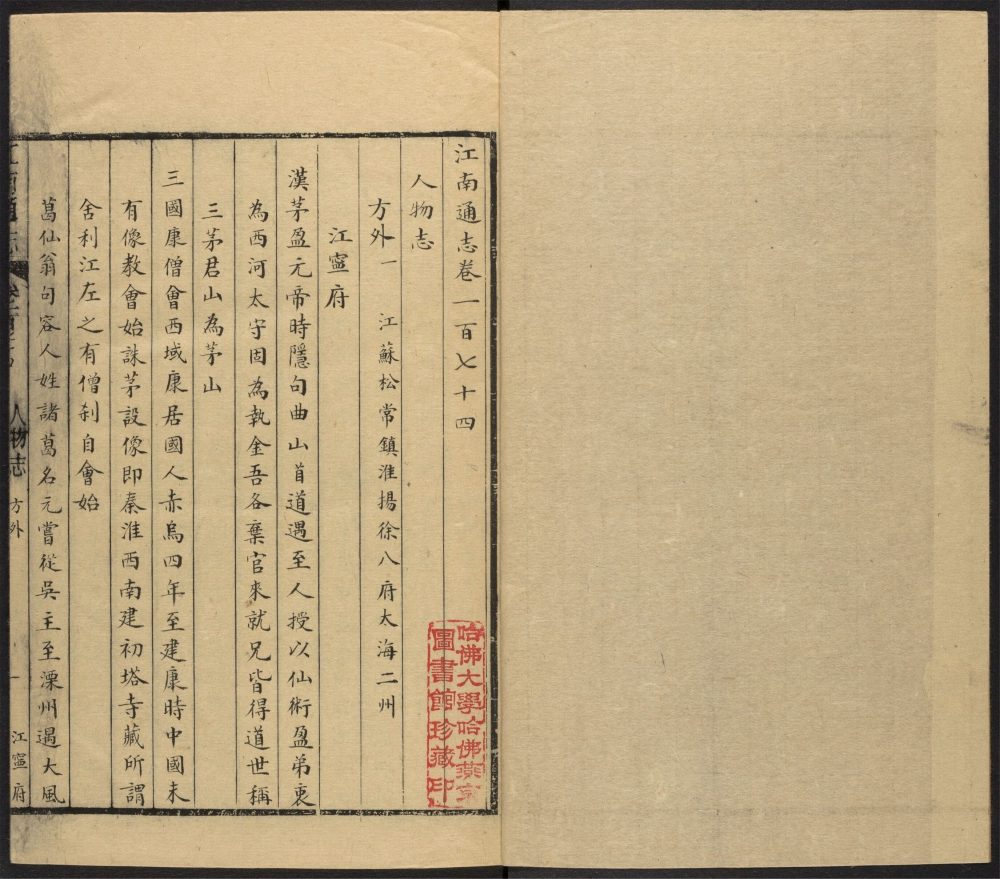 江南通志卷一百七十四
人物志
方外一 江蘇松常鎮淮揚徐八府太海二州
江寧府
漢茅盈元帝時隱句曲山首道遇至人授以仙術盈弟衷
為西河太守固為執金吾各棄官來就兄皆得道世稱
三茅君山為茅山
三國康僧會西域康居國人赤烏四年至建康時中國未
有像教會始誅茅設像即秦淮西南建初塔寺藏所謂
舍利江左之有僧刹自會始
葛仙翁句容人姓諸葛名元嘗從吳主至溧州遇大風
江南通志 卷一百七十四 人物志 方外 一 江寧府
哈佛大學哈佛燕京
圖書館珍藏印